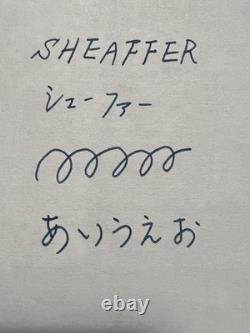 SHEAFFER
シェーファー
あいうえお
ebay